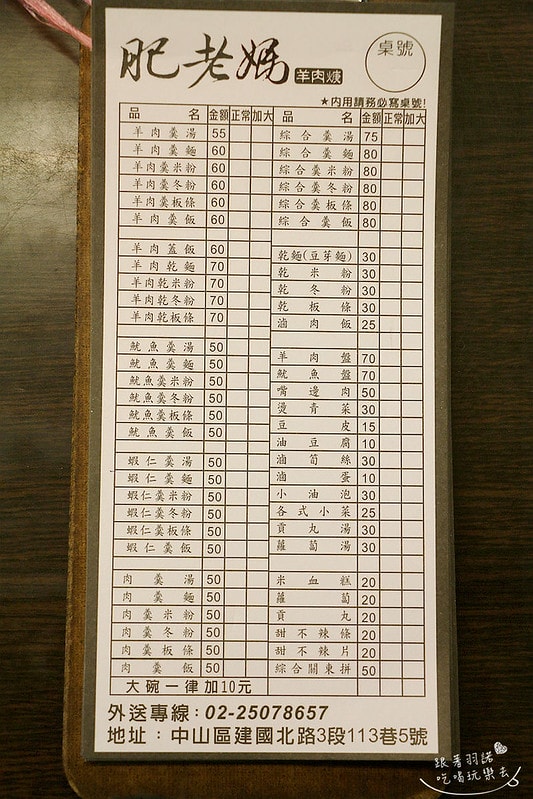 肥老媽 羊肉焿
桌號
★內用請務必寫桌號!
品名 金額 正常 加大 品名 金額 正常 加大
羊肉羹湯 55
羊肉羹麵 60
羊肉羹米粉 60
羊肉羹冬粉 60
羊肉羹板條 60
羊肉羹飯 60
羊肉蓋飯 60
羊肉乾麵 70
羊肉乾米粉 70
羊肉乾冬粉 70
羊肉乾板條 70
魷魚羹湯 50
魷魚羹麵 50
魷魚羹米粉 50
魷魚羹冬粉 50
魷魚羹板條 50
魷魚羹飯 50
蝦仁羹湯 50
蝦仁羹麵 50
蝦仁羹米粉 50
蝦仁羹冬粉 50
蝦仁羹板條 50
蝦仁羹飯 50
肉羹湯 50
肉羹麵 50
肉羹米粉 50
肉羹冬粉 50
肉羹板條 50
肉羹飯 50
大碗一律加10元
綜合羹湯 75
綜合羹麵 80
綜合羹米粉 80
綜合羹冬粉 80
綜合羹板條 80
綜合羹飯 80
乾麵(豆芽麵) 30
乾米粉 30
乾冬粉 30
乾板條 30
滷肉飯 25
羊肉盤 70
魷魚盤 70
嘴邊肉 50
燙青菜 30
豆皮 15
油豆腐 10
滷筍絲 30
滷蛋 10
小油泡 30
各式小菜 25
貢丸湯 30
蘿蔔湯 30
米血糕 20
蘿蔔 20
貢丸 20
甜不辣條 20
甜不辣片 20
綜合關東拼 50
外送專線:02-25078657
地址:中山區建國北路3段113巷5號
跟著羽諾
吃喝玩樂去